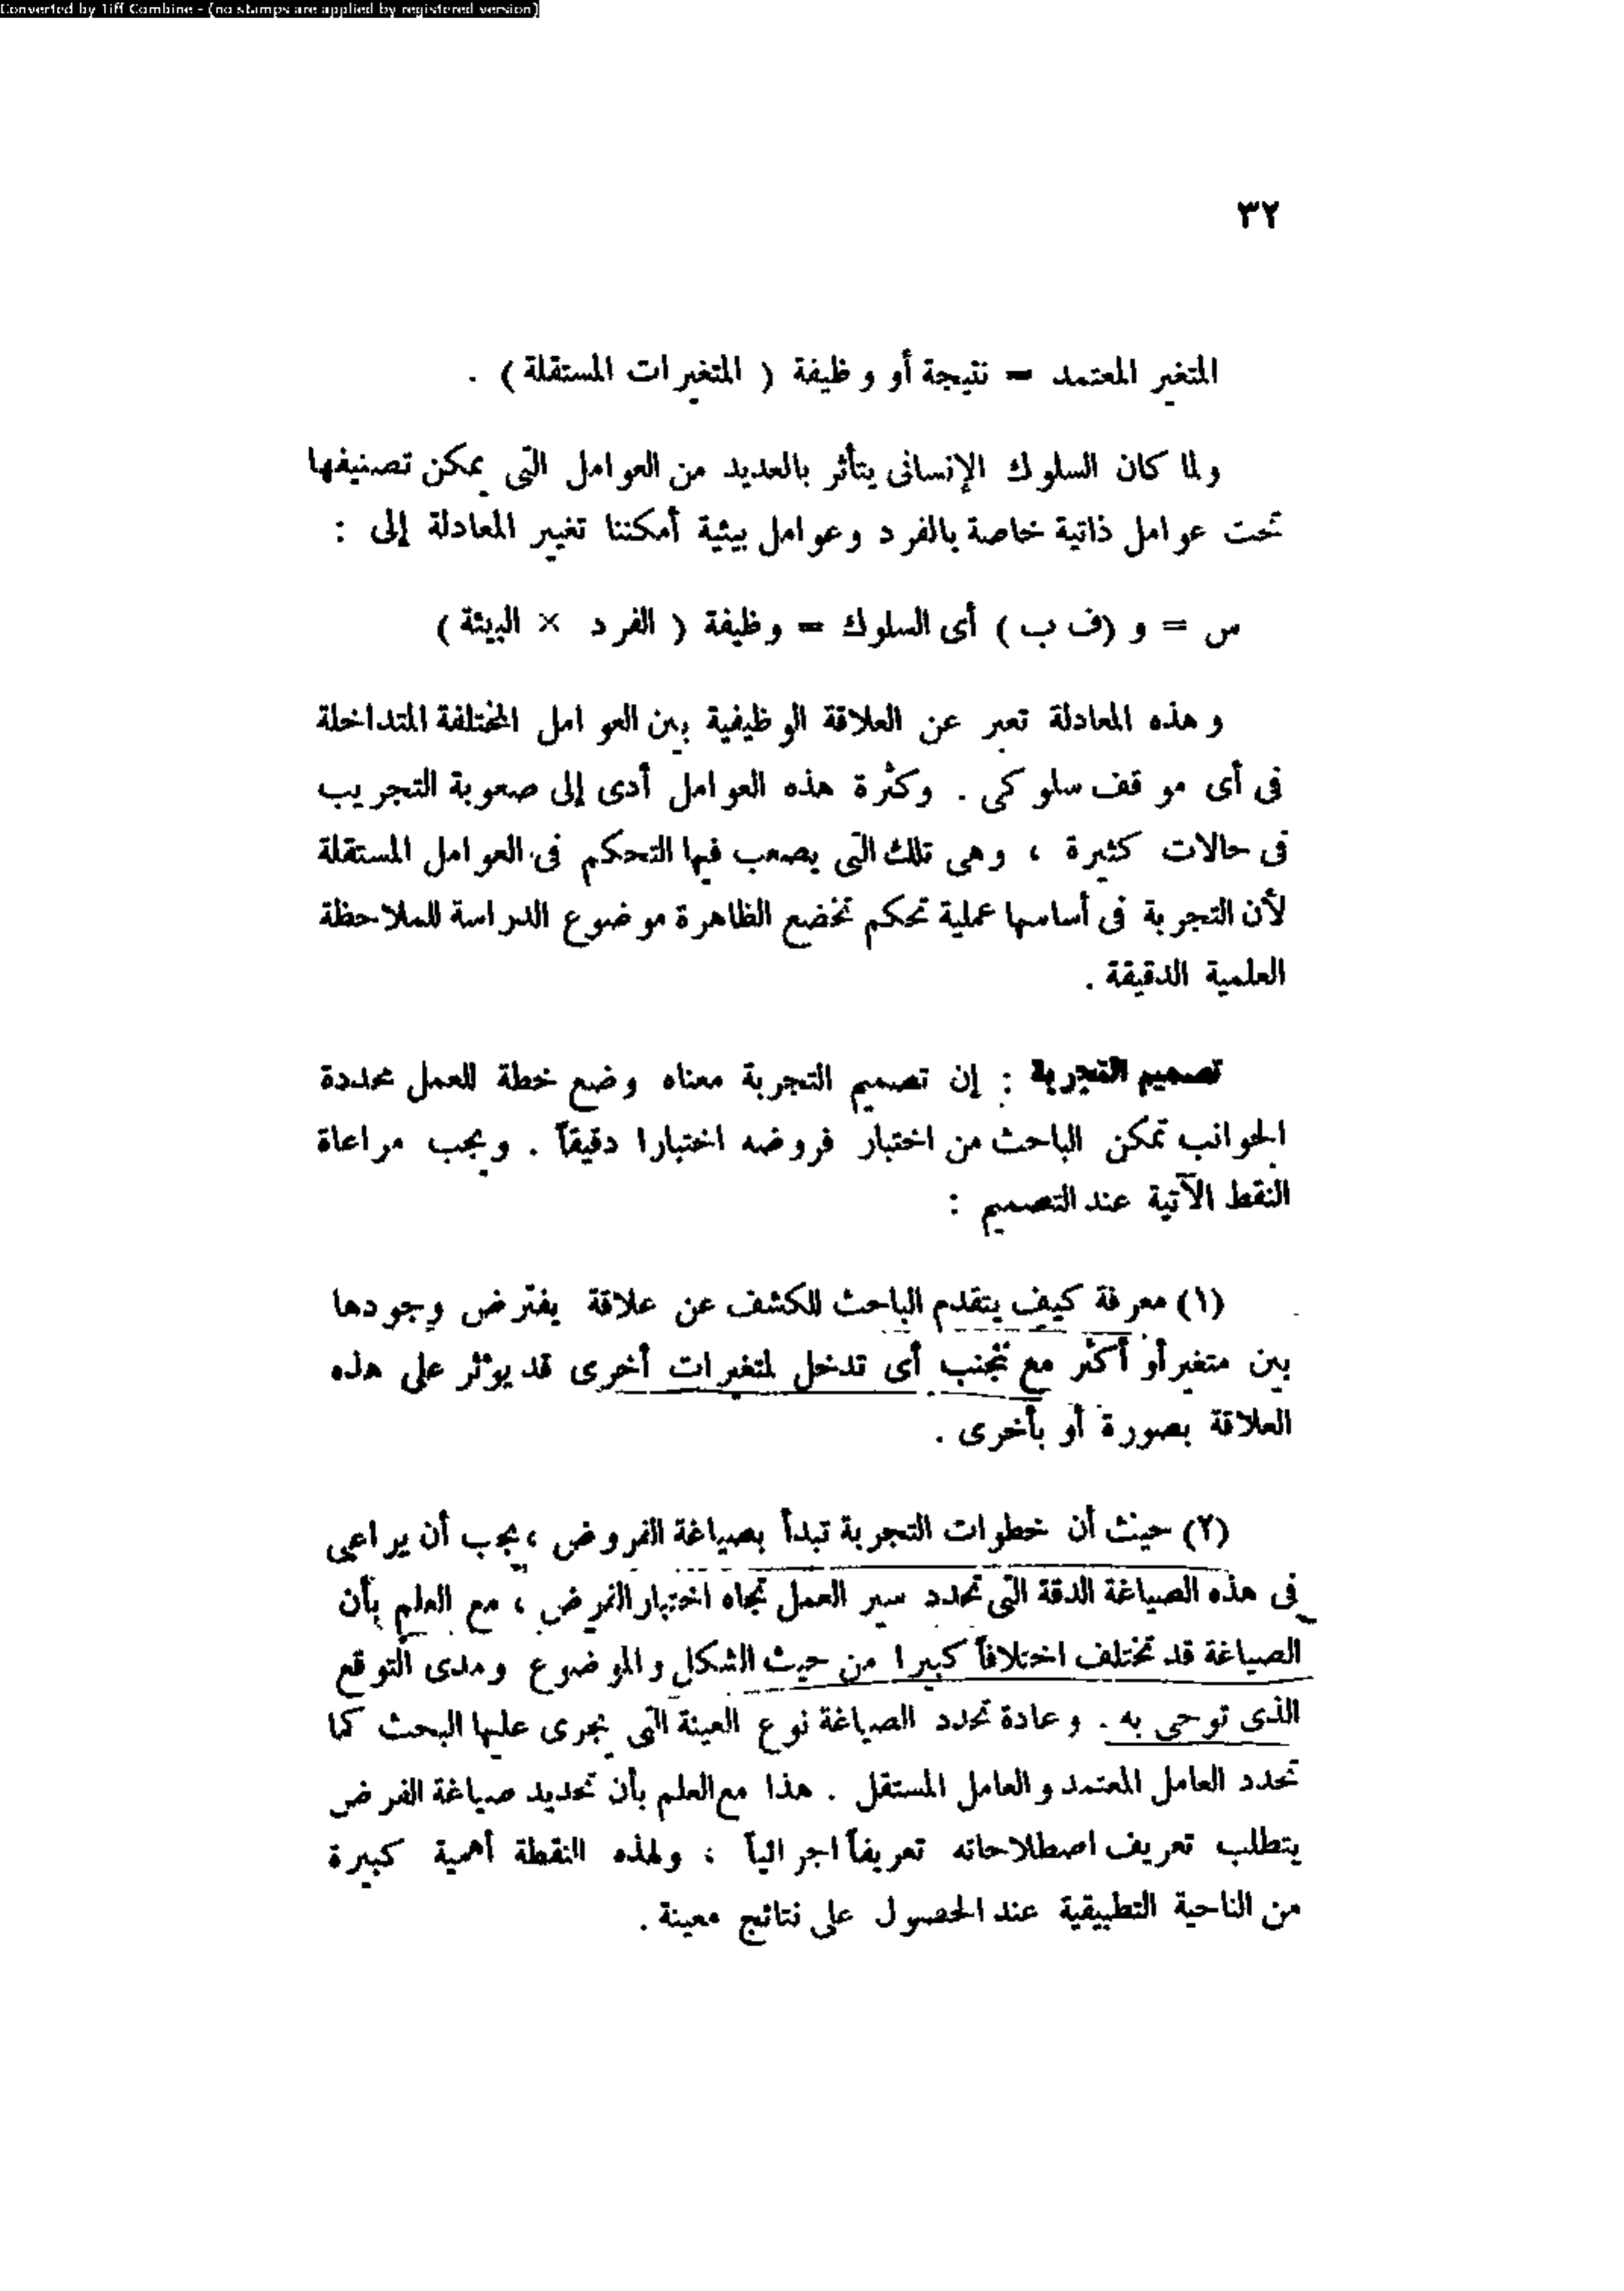 Converted by Tiff Combine - (no stamps are applied by registered version)
٣٢
المتغير المعتمد = نتيجة أو وظيفة ( المتغيرات المستقلة ) .
ولما كان السلوك الإنسانى يتأثر بالعديد من العوامل التى يمكن تصنيفها
تحت عوامل ذاتية خاصة بالفرد وعوامل بيئية أمكننا تغيير المعادلة إلى :
س = و (ف ب ) أى السلوك = وظيفة ( الفرد × البيئة )
وهذه المعادلة تعبر عن العلاقة الوظيفية بين العوامل المختلفة المتداخلة
فى أى موقف سلوكى . وكثرة هذه العوامل أدى إلى صعوبة التجريب
فى حالات كثيرة ، وهى تلك التى يصعب فيها التحكم فى العوامل المستقلة
لأن التجربة فى أساسها عملية تحكم تخضع الظاهرة موضوع الدراسة للملاحظة
العلمية الدقيقة .
تصميم التجربة : إن تصميم التجربة معناه وضع خطة للعمل محددة
الجوانب تمكن الباحث من اختبار فروضه اختبارا دقيقاً . ويجب مراعاة
النقط الآتية عند التصميم :
(١) معرفة كيف يتقدم الباحث للكشف عن علاقة يفترض وجودها
بين متغير أو أكثر مع تجنب أى تدخل لمتغيرات أخرى قد يؤثر على هذه
العلاقة بصورة أو بأخرى .
(٢) حيث أن خطوات التجربة تبدأ بصياغة الفروض ، يجب أن يراعى
فى هذه الصياغة الدقة التى تحدد سير العمل تجاه اختبار الفرض ، مع العلم بأن
الصياغة قد تختلف اختلافاً كبيرا من حيث الشكل والموضوع ومدى التوقع
الذى توحى به . وعادة تحدد الصياغة نوع العينة التى يجرى عليها البحث كما
تحدد العامل المعتمد والعامل المستقل . هذا مع العلم بأن تحديد صياغة الفرض
يتطلب تعريف اصطلاحاته تعريفاً اجرائياً ، ولهذه النقطة أهمية كبيرة
من الناحية التطبيقية عند الحصول على نتائج معينة .